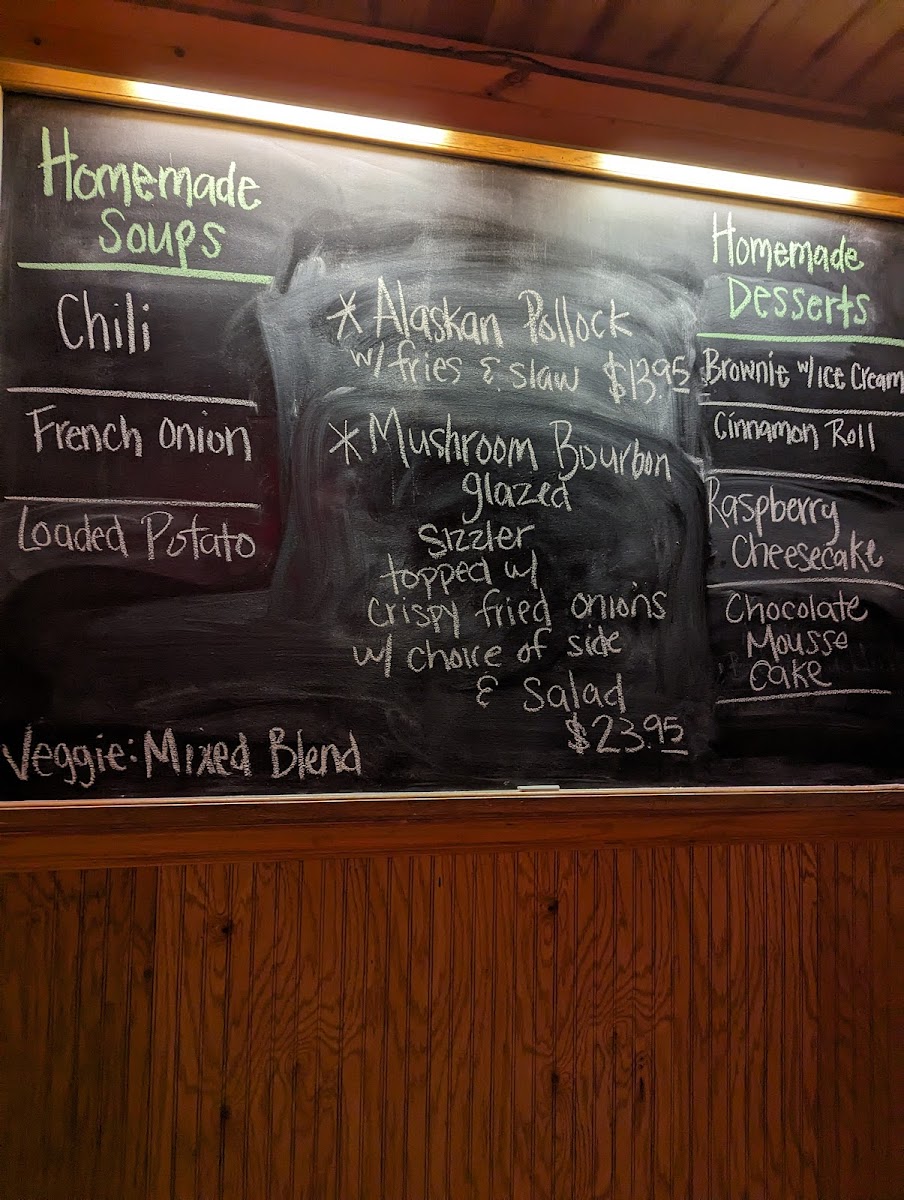 Homemade
Soups
Chili
French Onion
Loaded Potato
Veggie: Mixed Blend
* Alaskan Pollock
w/ fries & slaw $13.95
* Mushroom Bourbon
glazed
Sizzler
topped w/
crispy fried onions
w/ choice of side
& Salad
$23.95
Homemade
Desserts
Brownie w/ Ice Cream
Cinnamon Roll
Raspberry
Cheesecake
Chocolate
Mousse
Cake